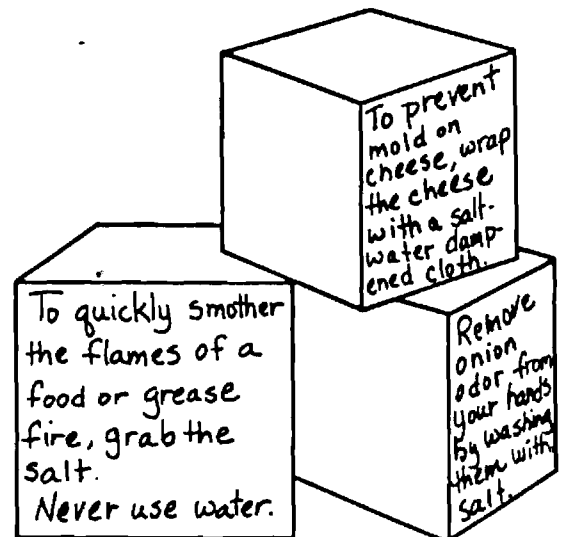 To prevent
mold on
cheese, wrap
the cheese
with a salt-
water damp-
ened cloth.
To quickly smother
the flames of a
food or grease
fire, grab the
salt.
Never use water.
Remove
onion
odor from
your hands
by washing
them with
salt.